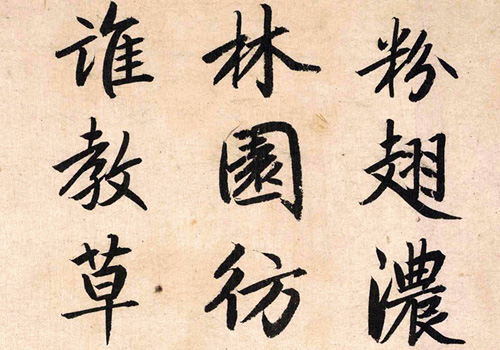 粉翅濃
林園彷
誰教草